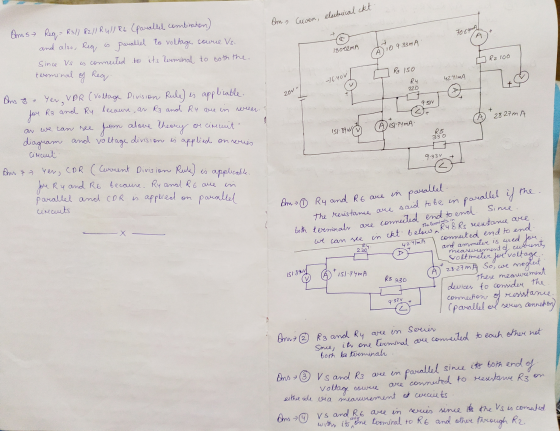 Ans 5 → Req = R3 // R2 // R4 // R6 (parallel combination)
and also, Req is parallel to voltage source Vs
Since Vs is connected to its terminal to both the
terminal of Req
Yes, VDR (Voltage Division Rule) is applicable
for R3 and R4 because, as R3 and R4 are in series
as we can see from above theory or circuit
diagram and voltage division is applied on series
circuit
Yes, CDR (Current Division Rule) is applicable
for R4 and R6 because, R4 and R6 are in
parallel and CDR is applied on parallel
circuits
x
Ans → Given, electrical ckt
20V
R3 150
R2 100
R4
220
151.74mA
28.27mA
R5
330
Ans → ① R4 and R6 are in parallel
The resistance are said to be in parallel if the
both terminals are connected end to end. Since
we can see in ckt below
connected end to end
and ammeter is used for
measurement of current,
voltmeter for voltage
So, we neglect
these measurement
devices to consider the
connection of resistance
(parallel or series connection)
R4
220
151.74mA
28.27mA
Ans → ② R3 and R4 are in Series
Since, its one terminal are connected to each other not
both terminals.
Ans → ③ VS and R3 are in parallel since its both end of
voltage source are connected to resistance R3 on
either side via measurement of circuits
Ans → ④ VS and R6 are in series since its the VS is connected
with its one terminal to R6 and other through R2